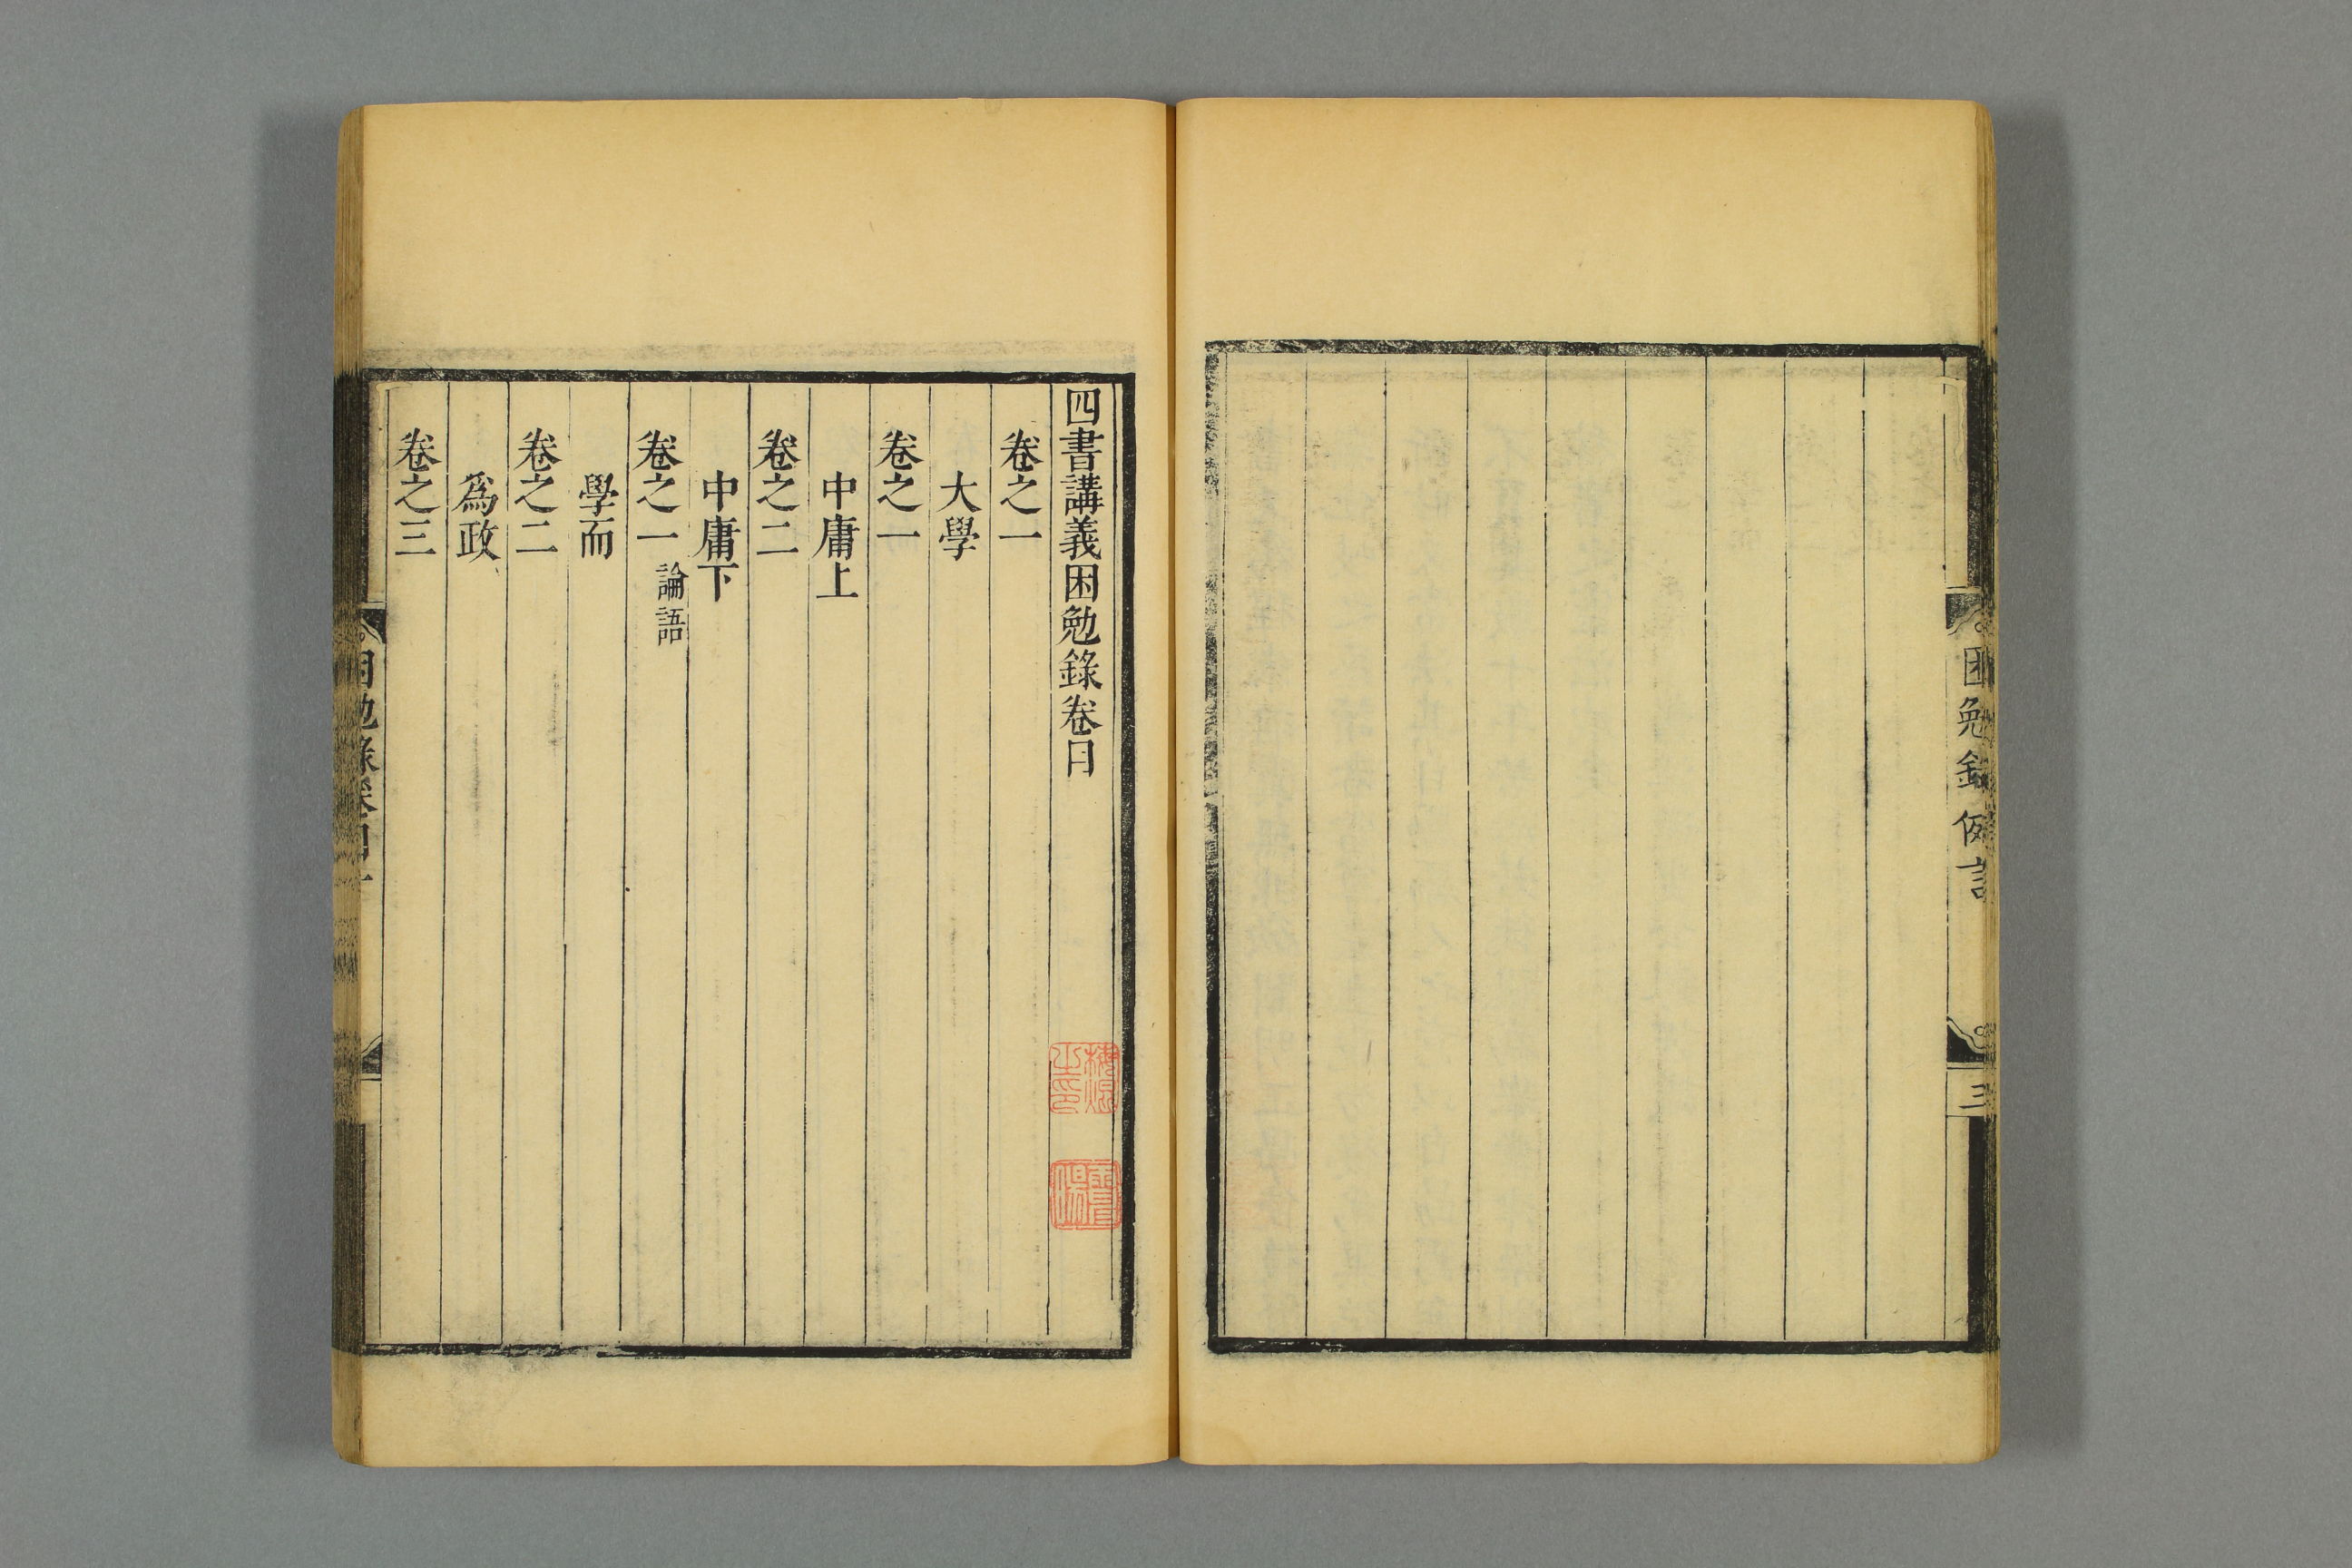 困勉錄
例言
三
四書講義困勉錄卷目
卷之一
大學
卷之一
中庸上
卷之二
中庸下
卷之一 論語
學而
卷之二
爲政
卷之三
困勉錄